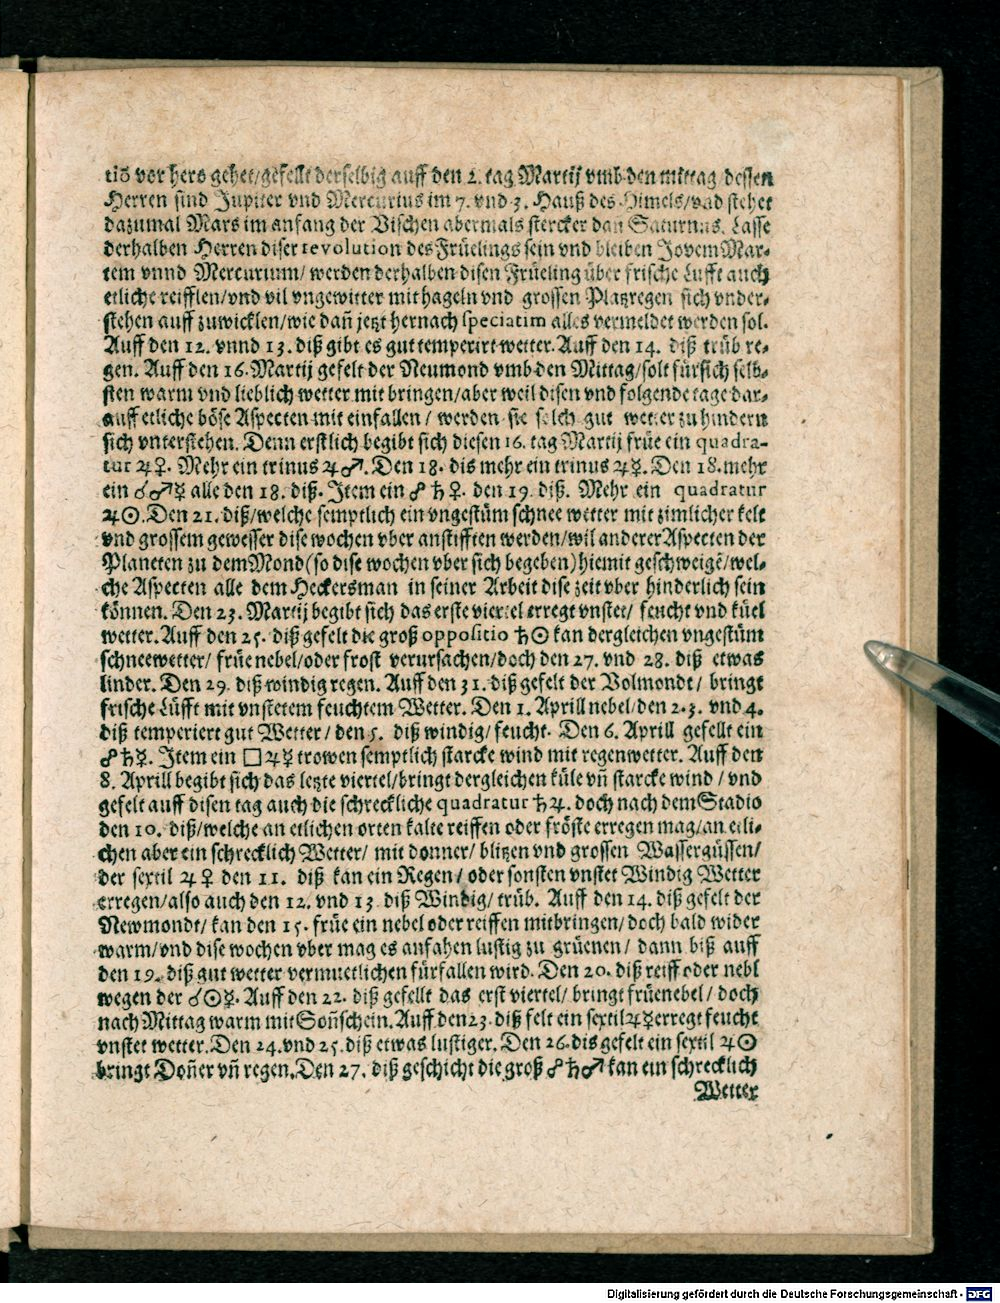 tiō vor hero gehet/gefellt derselbig auff den 2. tag Martij vmb den mittag dessen
Herren sind Jupiter vnd Mercurius im 7. vnd 3. Hauß des Himels/vnd stehet
dazumal Mars im anfang der Vischen abermals stercker dan Saturnus. Lasse
derhalben Herren diser revolution des Früelings sein vnd bleiben Jovem Mar-
tem vnnd Mercurium/ werden derhalben disen Früeling über frische Lufft auch
etliche reifflen/vnd vil vngewitter mit hageln vnd grossen Platzregen sich vnder-
stehen auff zuwicklen/wie dañ jetzt hernach speciatim alles vermeldet werden sol.
Auff den 12. vnnd 13. diß gibt es gut temperirt wetter. Auff den 14. diß trüb re-
gen. Auff den 16. Martij gefelt der Neumond vmb den Mittag/solt für sich selb-
sten warm vnd lieblich wetter mit bringen/aber weil disen vnd folgende tage dar-
auff etliche böse Aspecten mit einfallen / werden sie solch gut wetter zu hindern
sich vnterstehen. Denn erstlich begibt sich diesen 16. tag Martij früe ein quadra-
tur ♃♀. Mehr ein trinus ♃♂. Den 18. dis mehr ein trinus ♃☿. Den 18. mehr
ein ☌♂☿ alle den 18. diß. Item ein ☍♄♀. den 19. diß. Mehr ein quadratur
♃☉. Den 21. diß/welche semptlich ein vngestüm schnee wetter mit zimlicher kelt
vnd grossem gewesser dise wochen vber anstifften werden/wil anderer Aspecten der
Planeten zu dem Mond (so dise wochen vber sich begeben) hiemit geschweigē/wel-
che Aspecten alle dem Heckersman in seiner Arbeit dise zeit vber hinderlich sein
können. Den 23. Martij begibt sich das erste viertel erregt vnstet/ feucht vnd küel
wetter. Auff den 25. diß gefelt die groß oppositio ♄☉ kan dergleichen vngestüm
schneewetter/ früe nebel/oder frost verursachen/doch den 27. vnd 28. diß etwas
linder. Den 29. diß windig regen. Auff den 31. diß gefelt der Volmondt/ bringt
frische Lüfft mit vnstetem feuchtem Wetter. Den 1. Aprill nebel/den 2. 3. vnd 4.
diß temperiert gut Wetter / den 5. diß windig/ feucht. Den 6. Aprill gefellt ein
☍♄☿. Item ein □♃☿ trowen semptlich starcke wind mit regenwetter. Auff den
8. Aprill begibt sich das letzte viertel/bringt dergleichen küle vñ starcke wind / vnd
gefelt auff disen tag auch die schreckliche quadratur ♄♃. doch nach dem Stadio
den 10. diß/welche an etlichen orten kalte reiffen oder fröste erregen mag/an etli-
chen aber ein schrecklich Wetter/ mit donner/ blitzen vnd grossen Wassergüssen/
der sextil ♃♀ den 11. diß kan ein Regen/ oder sonsten vnstet Windig Wetter
erregen/also auch den 12. vnd 13 diß Windig/ trüb. Auff den 14. diß gefelt der
Newmondt/ kan den 15. früe ein nebel oder reiffen mitbringen/ doch bald wider
warm/vnd dise wochen vber mag es anfahen lustig zu grüenen/ dann biß auff
den 19. diß gut wetter vermuetlichen fürfallen wird. Den 20. diß reiff oder nebl
wegen der ☌☉☿. Auff den 22. diß gefellt das erst viertel/ bringt früenebel/ doch
nach Mittag warm mit Soñschein. Auff den 23. diß felt ein sextil ♃☿ erregt feucht
vnstet wetter. Den 24. vnd 25. diß etwas lustiger. Den 26. dis gefelt ein sextil ♃☉
bringt Doñer vñ regen. Den 27. diß geschicht die groß ☍♄♂ kan ein schrecklich
Wetter
Digitalisierung gefördert durch die Deutsche Forschungsgemeinschaft - DFG